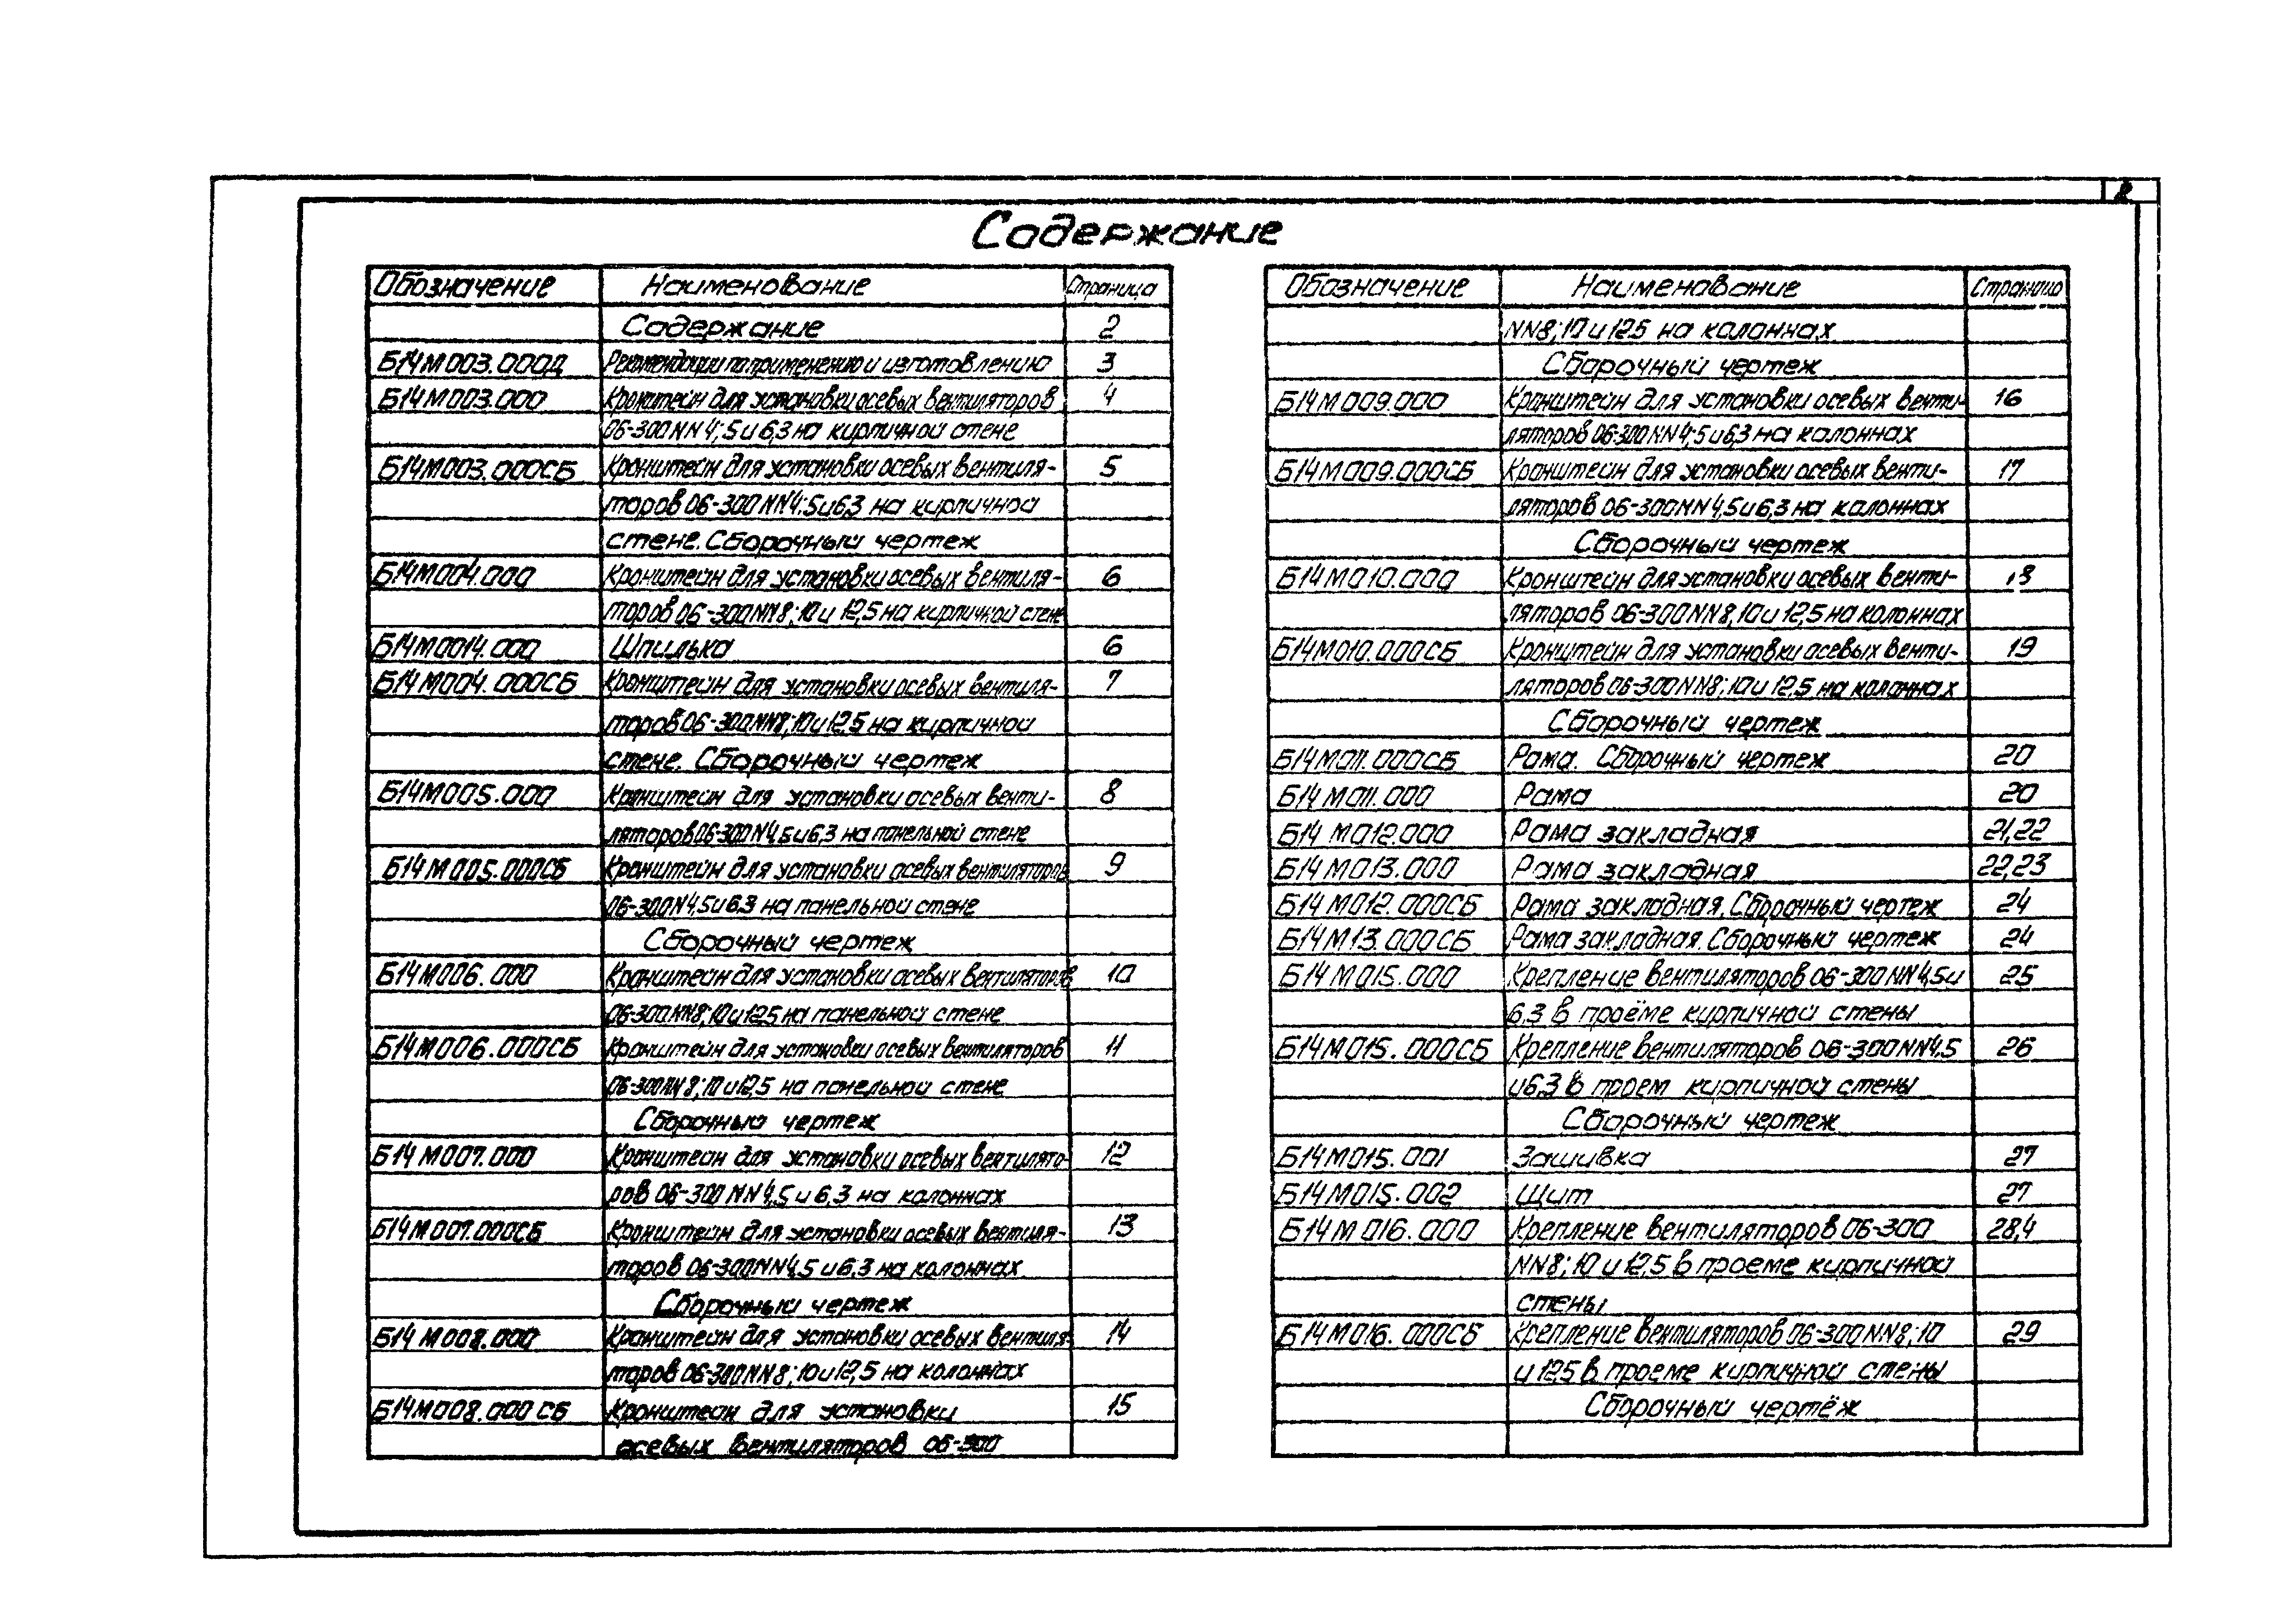 2
Содержание
Обозначение Наименование Страница
Содержание 2
Б14М003.000Д Рекомендации по применению и изготовлению 3
Б14М003.000 Кронштейн для установки осевых вентиляторов 4
06-300NN4;5и6,3 на кирпичной стене
Б14М003.000СБ Кронштейн для установки осевых вентиля- 5
торов 06-300NN4;5и6,3 на кирпичной
стене. Сборочный чертеж
Б14М004.000 Кронштейн для установки осевых вентиля- 6
торов 06-300NN8;10 и 12,5 на кирпичной стене
Б14М0014.000 Шпилька 6
Б14М004.000СБ Кронштейн для установки осевых вентиля- 7
торов 06-300NN8;10и12,5 на кирпичной
стене. Сборочный чертеж
Б14М005.000 Кронштейн для установки осевых венти- 8
ляторов 06-300N4,5и6,3 на панельной стене
Б14М005.000СБ Кронштейн для установки осевых вентиляторов 9
06-300N4,5и6,3 на панельной стене
Сборочный чертеж
Б14М006.000 Кронштейн для установки осевых вентиляторов 10
06-300NN8;10и12,5 на панельной стене
Б14М006.000СБ Кронштейн для установки осевых вентиляторов 11
06-300NN8;10и12,5 на панельной стене
Сборочный чертеж
Б14М007.000 Кронштейн для установки осевых вентилято- 12
ров 06-300NN4,5 и 6,3 на колоннах
Б14М007.000СБ Кронштейн для установки осевых вентиля- 13
торов 06-300NN4,5 и 6,3 на колоннах
Сборочный чертеж
Б14М008.000 Кронштейн для установки осевых вентиля- 14
торов 06-300NN8;10и12,5 на колоннах
Б14М008.000СБ Кронштейн для установки 15
осевых вентиляторов 06-300
Обозначение Наименование Страница
NN8;10 и 12.5 на колоннах
Сборочный чертеж
Б14М009.000 Кронштейн для установки осевых венти- 16
ляторов 06-300NN4;5и6,3 на колоннах
Б14М009.000СБ Кронштейн для установки осевых венти- 17
ляторов 06-300NN4,5и6,3 на колоннах
Сборочный чертеж
Б14М010.000 Кронштейн для установки осевых венти- 18
ляторов 06-300NN8,10 и 12,5 на колоннах
Б14М010.000СБ Кронштейн для установки осевых венти- 19
ляторов 06-300NN8;10 и 12,5 на колоннах
Сборочный чертеж
Б14М011.000СБ Рама. Сборочный чертеж 20
Б14М011.000 Рама 20
Б14 М012.000 Рама закладная 21,22
Б14М013.000 Рама закладная 22,23
Б14М012.000СБ Рама закладная. Сборочный чертеж 24
Б14М13.000СБ Рама закладная. Сборочный чертеж 24
Б14М015.000 Крепление вентиляторов 06-300NN4,5и 25
6,3 в проёме кирпичной стены
Б14М015.000СБ Крепление вентиляторов 06-300NN4,5 26
и6,3 в проем кирпичной стены
Сборочный чертеж
Б14М015.001 Зашивка 27
Б14М015.002 Щит 27
Б14М016.000 Крепление вентиляторов 06-300 28,4
NN8;10 и 12,5 в проеме кирпичной
стены
Б14М016.000СБ Крепление вентиляторов 06-300NN8;10 29
и 12,5 в проеме кирпичной стены
Сборочный чертёж